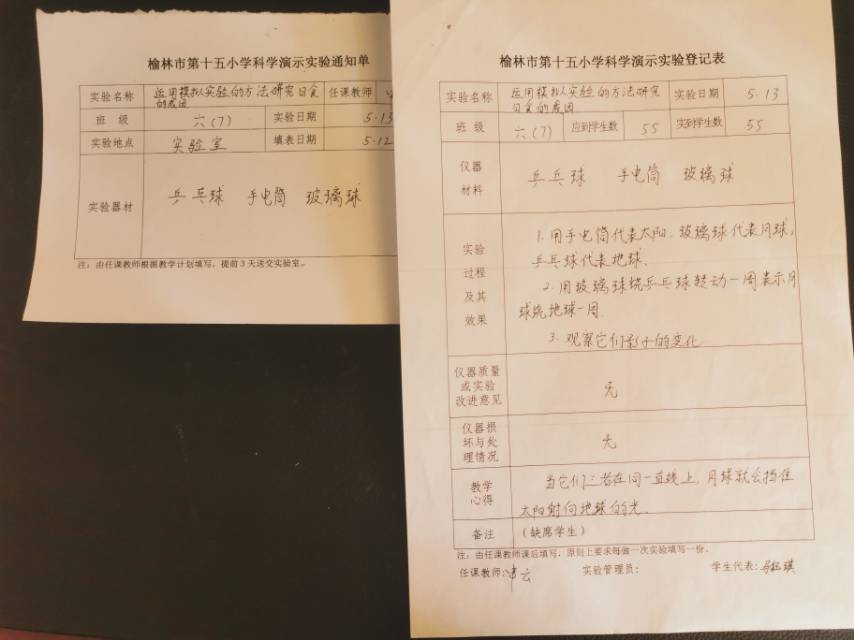 榆林市第十五小学科学演示实验通知单
实验名称 运用模拟实验的方法研究日食的成因 任课教师
班 级 六(7) 实验日期 5.13
实验地点 实验室 填表日期 5.12
实验器材 乒乓球 手电筒 玻璃球
注：由任课教师根据教学计划填写，提前3天送交实验室。
榆林市第十五小学科学演示实验登记表
实验名称 运用模拟实验的方法研究日食的成因 实验日期 5.13
班 级 六(7) 应到学生数 55 实到学生数 55
仪器材料 乒乓球 手电筒 玻璃球
实验过程及其效果
1.用手电筒代表太阳，玻璃球代表月球，
乒乓球代表地球。
2.用玻璃球绕乒乓球转动一周表示月
球绕地球一周
3.观察它们影子的变化
仪器质量或实验改进意见 无
仪器损坏与处理情况 无
教学心得 当它们三者在同一直线上，月球就会挡住
太阳射向地球的光。
备注 (缺席学生)
注：由任课教师课后填写，原则上要求每做一次实验填写一份。
任课教师: 实验管理员: 学生代表: